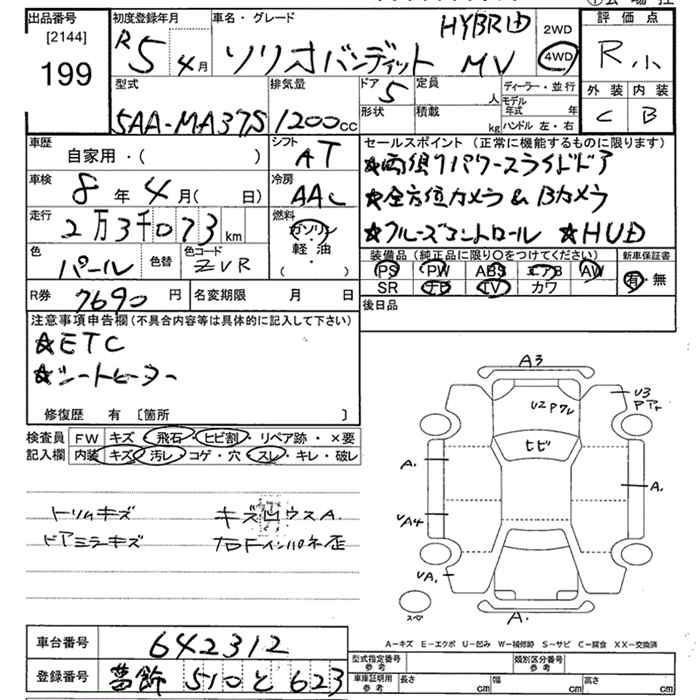 出品番号
[2144]
199
初度登録年月
R5年4月
車名・グレード
HYBRID
ソリオバンディット MV
2WD
4WD
評価点
R小
外装 内装
C B
型式
5AA-MA37S
排気量
1200cc
ドア
5
形状
定員
人
積載
kg
ディーラー・並行
モデル年式 年
ハンドル 左・右
車歴
自家用・( )
シフト
AT
車検
8年4月( 日)
冷房
AAC
走行
2万3千073km
燃料
ガソリン
軽油
( )
色
パール
色替
色コード
ZVR
R券
7690円
名変期限 月 日
セールスポイント(正常に機能するものに限ります)
★両側パワースライドドア
★全方位カメラ&Bカメラ
★クルーズコントロール ★HUD
装備品(純正品に限り○をつけてください)
PS PW ABS エアB AW
SR ナビ TV カワ
新車保証書
有・無
後日品
注意事項申告欄(不具合内容等は具体的に記入して下さい)
★ETC
★シートヒーター
修復歴 有 [箇所 ]
検査員 FW キズ・飛石・ヒビ割・リペア跡・×要
記入欄 内装 キズ・汚レ・コゲ・穴・スレ・キレ・破レ
トリムキズ キズ凹ウスA.
ドアミラーキズ 右Fインパネ歪
A3
U3
U2Pワレ
ヒビ
A.
A.
UA4
UA.
スペ
A.
A-キズ E-エクボ U-凹み W-補修跡 S-サビ C-腐食 XX-交換済
車台番号 642312
登録番号 葛飾 510 と 623
型式指定番号 参考
類別区分番号 参考
車庫証明用 参考 長さ cm 幅 cm 高さ cm